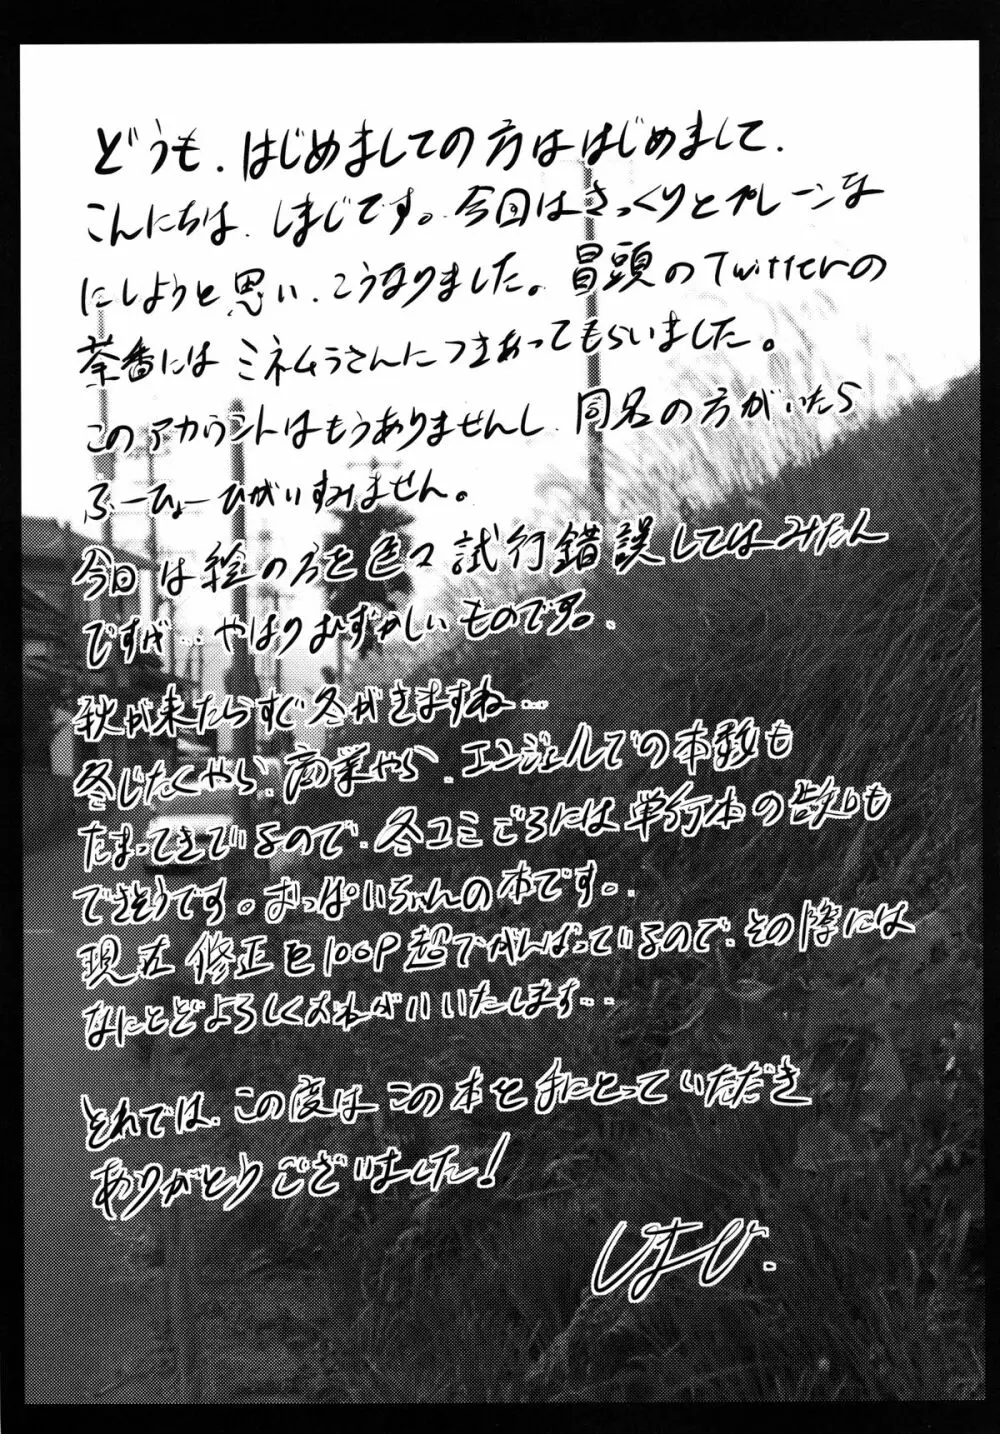 どうも、はじめましての方ははじめまして、
こんにちは、しまじです。今回はさっくりとプレーンな
にしようと思い、こうなりました。冒頭のTwitterの
茶番にはミネムラさんにつきあってもらいました。
このアカウントはもうありませんし、同名の方がいたら
ふーひょーひがいすみません。
今回は絵の方を色々試行錯誤してはみたん
ですが…やはりむずかしいものです。
秋が来たらすぐ冬がきますね…
冬じたくやら、商業やら、エンジェルでの本数も
たまってきているので、冬コミごろには単行本の数も
できそうです。おっぱいちゃんの本です。
現在修正を100P超でがんばっているので、その際には
なにとぞよろしくおねがいいたします…
それでは、この度はこの本を手にとっていただき
ありがとうございました!
しまじ.